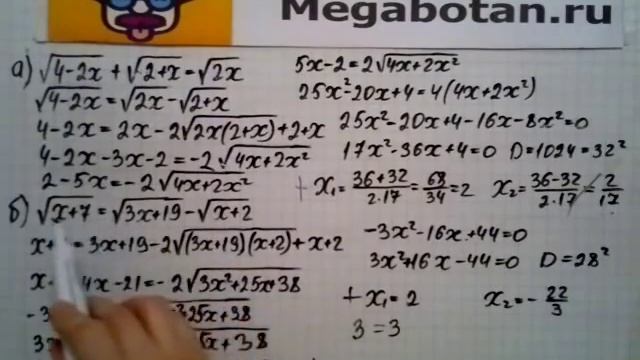 Megabotan.ru
а) √(4-2x) + √(2+x) = √(2x)
√(4-2x) = √(2x) - √(2+x)
4-2x = 2x - 2√(2x(2+x)) + 2+x
4-2x-3x-2 = -2√(4x+2x²)
2-5x = -2√(4x+2x²)
5x-2 = 2√(4x+2x²)
25x²-20x+4 = 4(4x+2x²)
25x²-20x+4-16x-8x² = 0
17x²-36x+4 = 0 D = 1024 = 32²
+ x₁ = (36+32)/(2·17) = 68/34 = 2 x₂ = (36-32)/(2·17) = 2/17
б) √(x+7) = √(3x+19) - √(x+2)
x+ = 3x+19-2√((3x+19)(x+2)) + x+2
x 4x-21 = -2√(3x²+25x+38)
-3 25x+38
3 x+38
-3x²-16x+44 = 0
3x²+16x-44 = 0 D = 28²
+ x₁ = 2 x₂ = -22/3
3 = 3